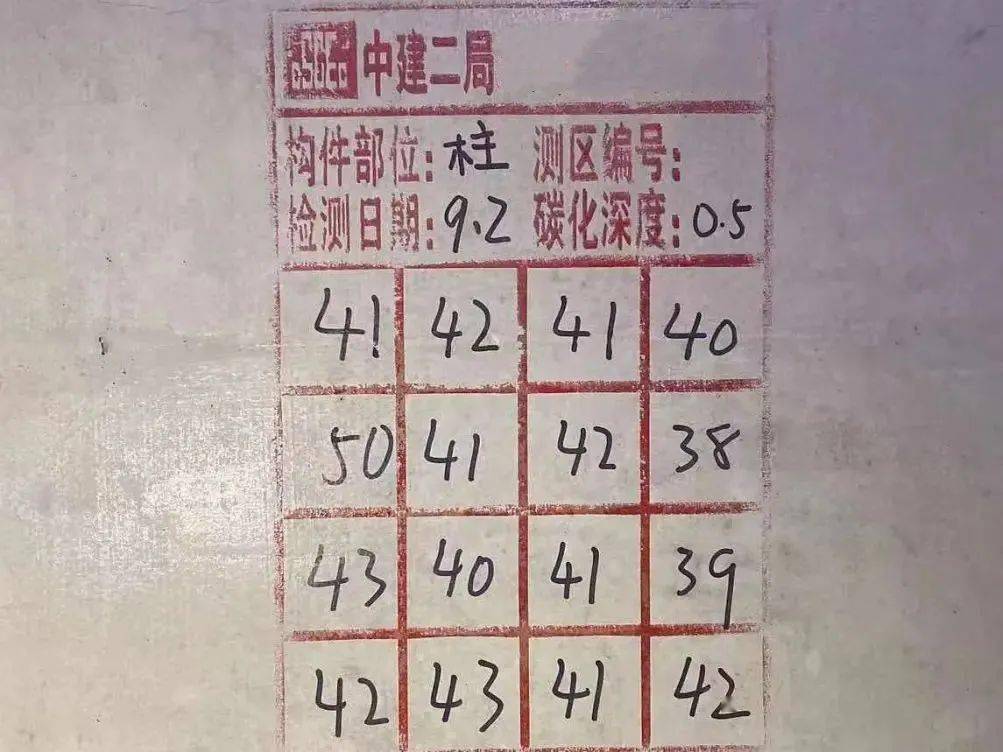 中建二局
构件部位:柱 测区编号:
检测日期:9.2 碳化深度:0.5
41 42 41 40
50 41 42 38
43 40 41 39
42 43 41 42